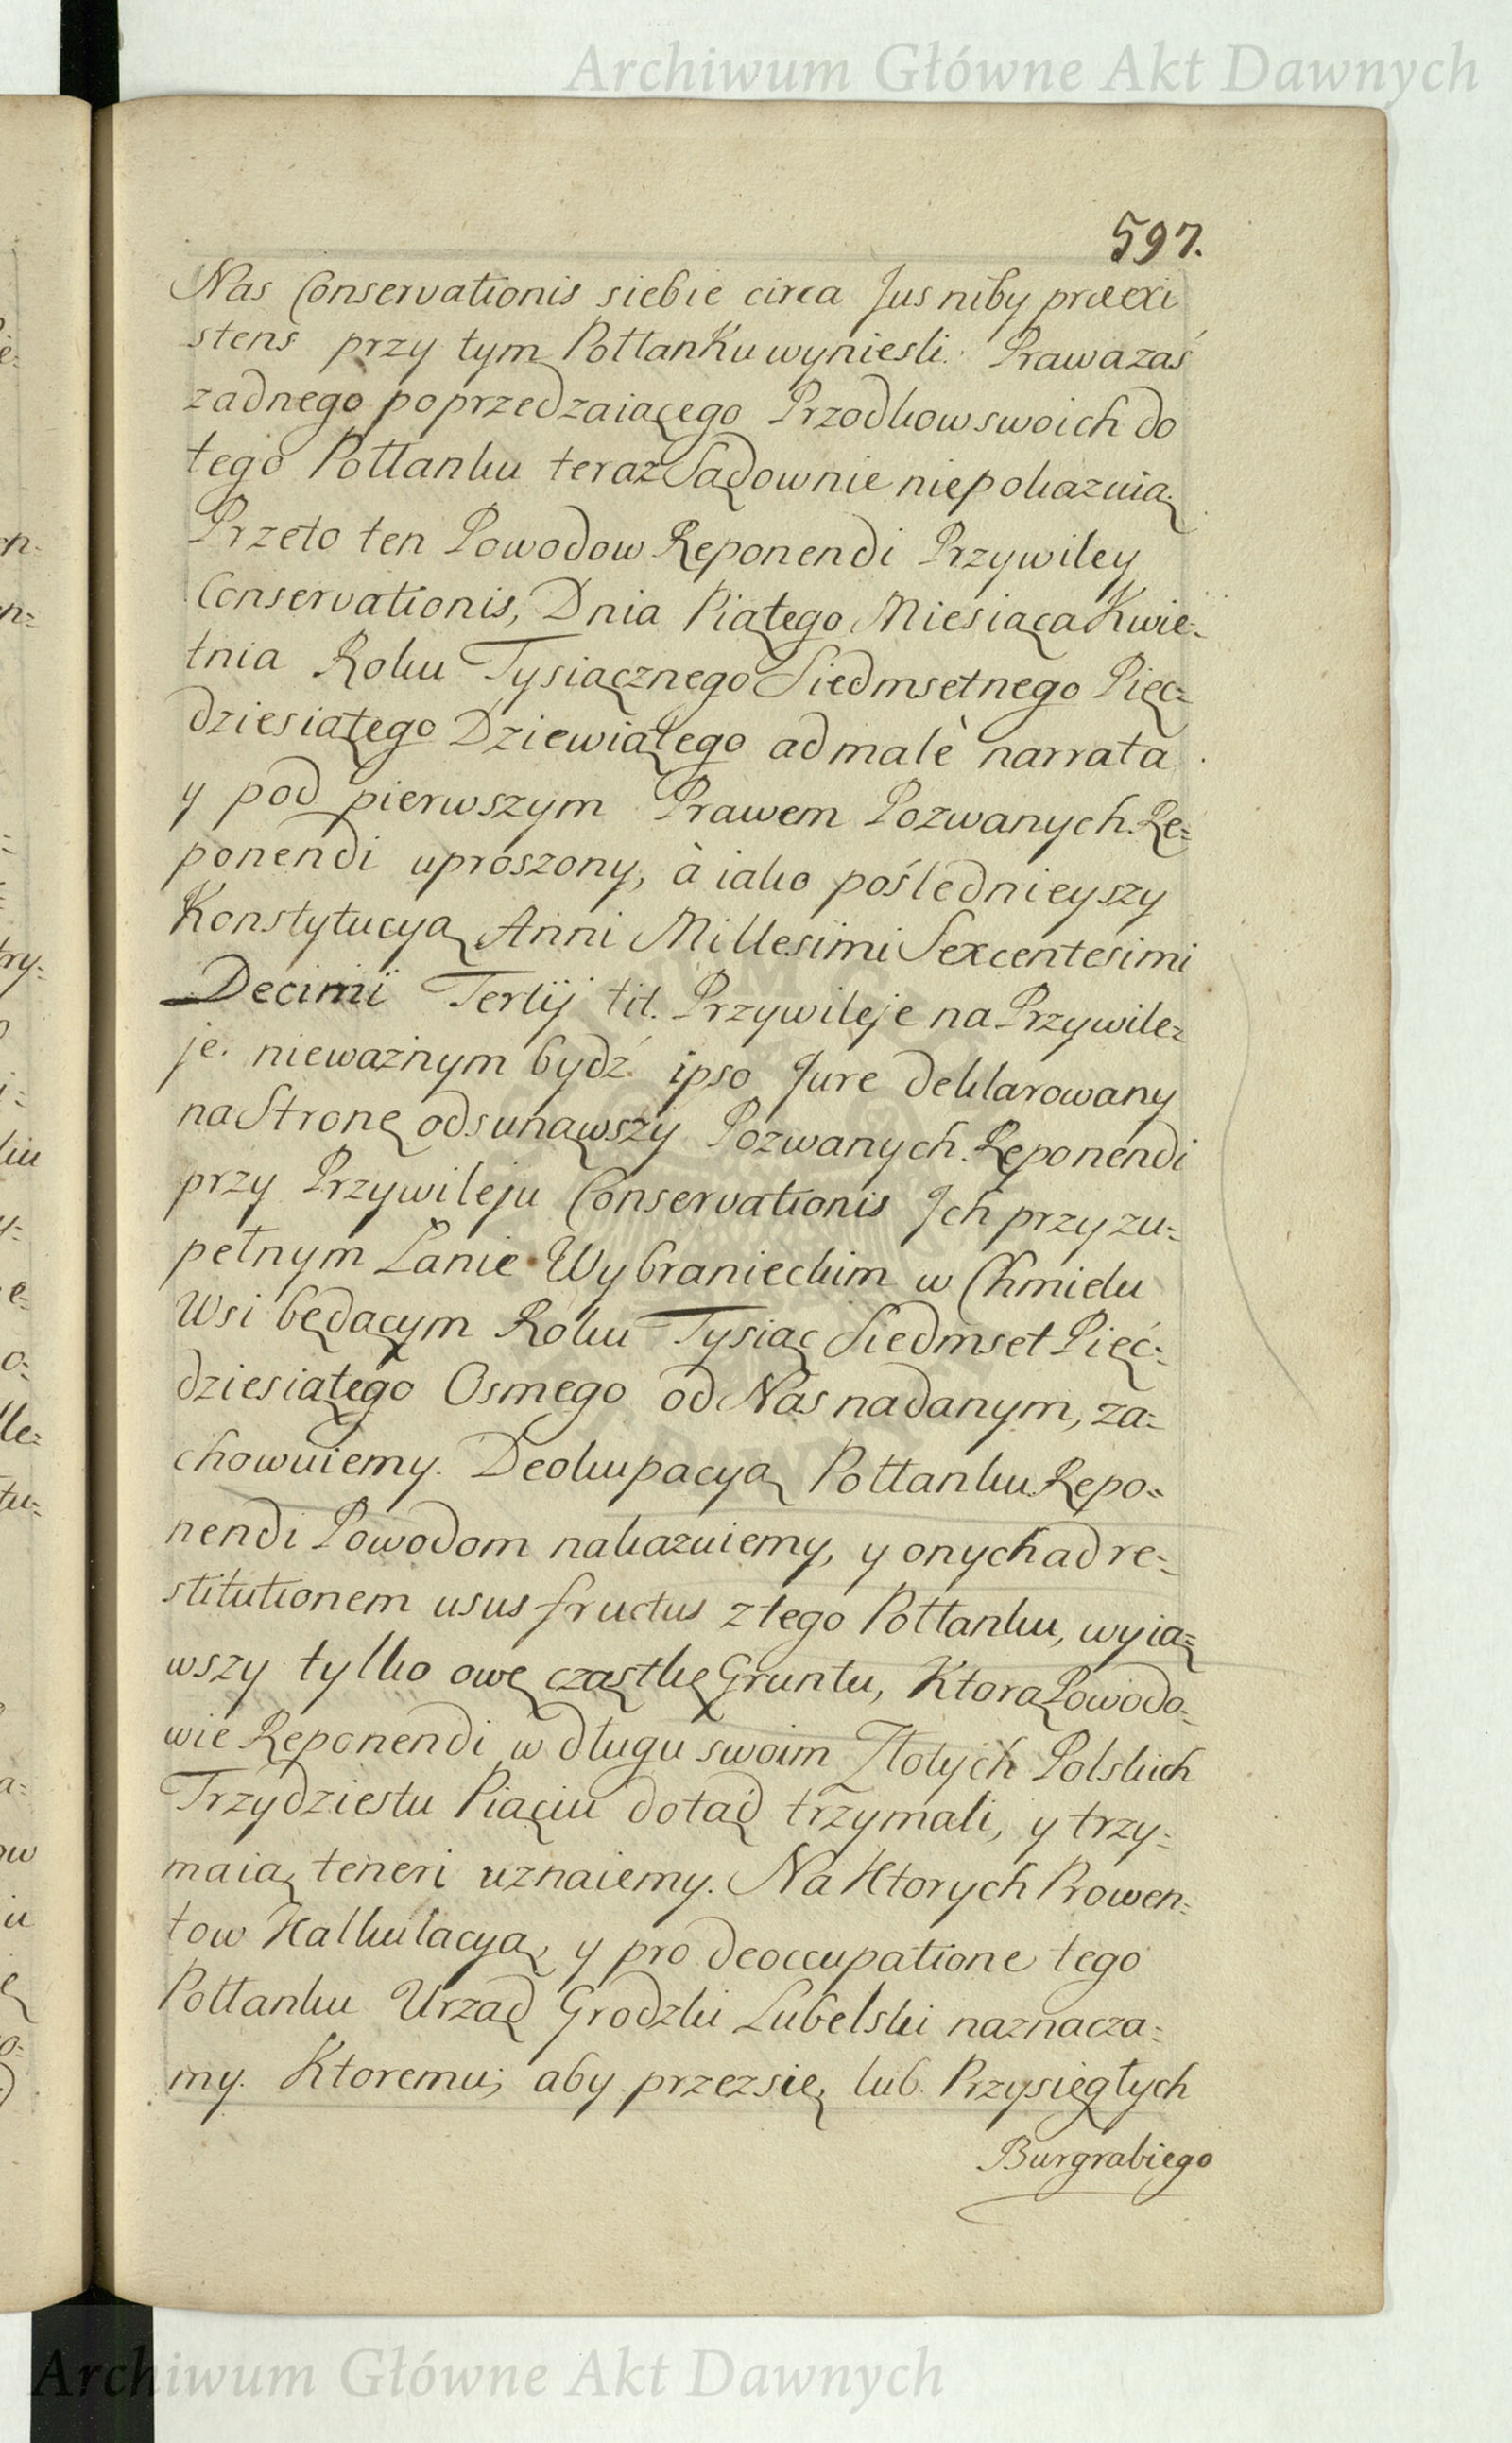 Archiwum Główne Akt Dawnych
597.
Nas Conservationis siebie circa Jus niby praeexi
stens przy tym Połłanku wyniesli. Prawa zaś
zadnego poprzedzaiącego Przodkow swoich do
tego Połłanku teraz Sądownie niepokazuią.
Przeto ten Powodow Reponendi Przywiley
Conservationis, Dnia Piątego Miesiąca Kwie=
tnia Roku Tysiącznego Siedmsetnego Pięć=
dziesiątego Dziewiątego ad malè narrata
y pod pierwszym Prawem Pozwanych Re=
ponendi uproszony, à iako poślednieyszy
Konstytucyą Anni Millesimi Sexcentesimi
Decimi Tertij tit. Przywileje na Przywile=
je. nieważnym bydź ipso Jure deklarowany
na Stronę odsunąwszy Pozwanych Reponendi
przy Przywileju Conservationis Jch przy zu=
pełnym Łanie Wybranieckim w Chmielu
Wsi będącym Roku Tysiąc Siedmset Pięć=
dziesiątego Osmego od Nas nadanym, za=
chowuiemy. Deokupacyą Połłanku Repo=
nendi Powodom nakazuiemy, y onych ad re=
stitutionem usus fructus z tego Połłanku, wyią=
wszy tylko owę cząstkę Gruntu, Ktorą Powodo=
wie Reponendi w długu swoim Złotych Polskich
Trzydziestu Piąciu dotąd trzymali, y trzy=
maią teneri uznaiemy. Na Ktorych Prowen=
tow Kalkulacyą, y pro deoccupatione tego
Połłanku Urząd Grodzki Lubelski naznacza=
my. Ktoremu; aby przez się, lub Przysięgłych
Burgrabiego
Archiwum Główne Akt Dawnych